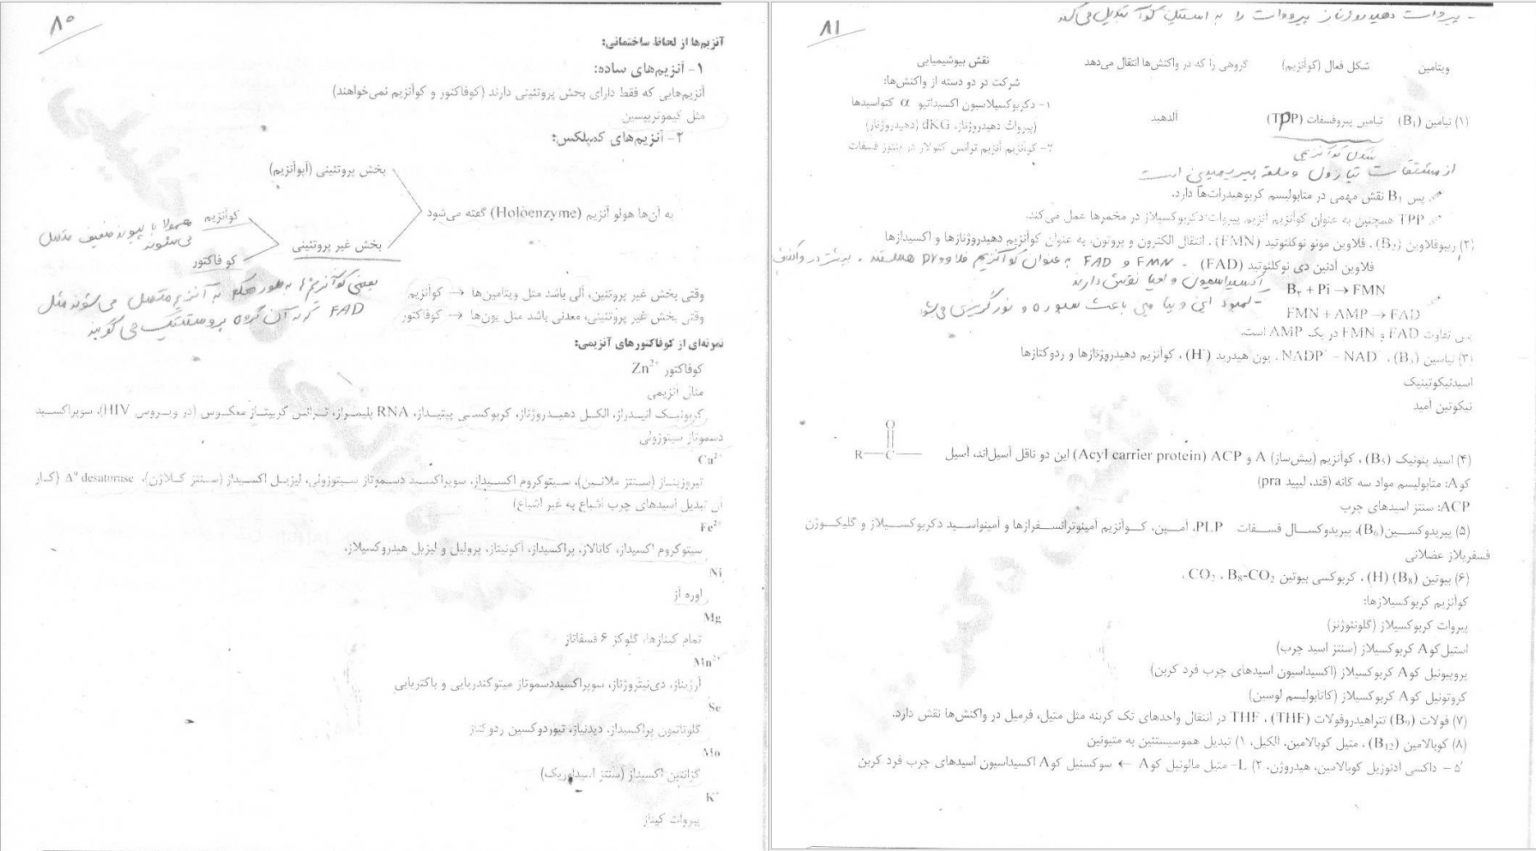 ۸۰
آنزیم‌ها از لحاظ ساختمانی:
۱- آنزیم‌های ساده:
آنزیم‌هایی که فقط دارای بخش پروتئینی دارند (کوفاکتور و کوآنزیم نمی‌خواهند)
مثل کیموتریپسین
۲- آنزیم‌های کمپلکس:
بخش پروتئینی (آپوآنزیم)
به آن‌ها هولو آنزیم (Holoenzyme) گفته می‌شود
بخش غیر پروتئینی
کوآنزیم
کوفاکتور
معمولا با پیوند ضعیف متصل
می‌شوند
وقتی بخش غیر پروتئین، آلی باشد مثل ویتامین‌ها → کوآنزیم
وقتی بخش غیر پروتئینی، معدنی باشد مثل یون‌ها → کوفاکتور
بعضی کوآنزیم‌ها به طور محکم به آنزیم متصل می‌شوند مثل
FAD که به آن گروه پروستتیک می‌گویند
نمونه‌ای از کوفاکتورهای آنزیمی:
کوفاکتور Zn²⁺
مثال آنزیمی
کربونیک انیدراز، الکل دهیدروژناز، کربوکسی پپتیداز، RNA پلیمراز، ترانس کریپتاز معکوس (در ویروس HIV)، سوپراکسید
دسموتاز سیتوزولی
Cu²⁺
تیروزیناز (سنتز ملانین)، سیتوکروم اکسیداز، سوپراکسید دسموتاز سیتوزولی، لیزیل اکسیداز (سنتز کلاژن)، desaturase (کار
آن تبدیل اسیدهای چرب اشباع به غیر اشباع)
Fe²⁺
سیتوکروم اکسیداز، کاتالاز، پراکسیداز، آکونیتاز، پرولیل و لیزیل هیدروکسیلاز،
Ni
اوره آز
Mg
تمام کینازها، گلوکز ۶ فسفاتاز
Mn²⁺
آرژیناز، دی‌نیتروژناز، سوپراکسیددسموتاز میتوکندریایی و باکتریایی
Se
گلوتاتیون پراکسیداز، دیدنیاز، تیوردوکسین ردوکتاز
Mo
گزانتین اکسیداز (سنتز اسیداوریک)
K⁺
پیروات کیناز
- پیروات دهیدروژناز پیرووات را به استیل کوآ تبدیل می‌کند
۸۱
ویتامین شکل فعال (کوآنزیم) گروهی را که در واکنش‌ها انتقال می‌دهد نقش بیوشیمیایی
شرکت در دو دسته از واکنش‌ها:
۱- دکربوکسیلاسیون اکسیداتیو α کتواسیدها
(۱) تیامین (B₁) تیامین پیروفسفات (TPP) آلدهید
(پیروات دهیدروژناز، dKG (دهیدروژناز)
۲- کوآنزیم آنزیم ترانس کتولاز در پنتوز فسفات
شکل کوآنزیمی
از مشتقات تیازول و حلقه پیریمیدین است
پس B₁ نقش مهمی در متابولیسم کربوهیدرات‌ها دارد.
TPP همچنین به عنوان کوآنزیم آنزیم پیروات دکربوکسیلاز در مخمرها عمل می‌کند.
(۲) ریبوفلاوین (B₂)، فلاوین مونو نوکلئوتید (FMN)، انتقال الکترون و پروتون، به عنوان کوآنزیم دهیدروژنازها و اکسیدازها
فلاوین آدنین دی نوکلئوتید (FAD)
FMN و FAD به عنوان کوآنزیم فلاووپروتئین هستند، بیشتر در واکنش
اکسیداسیون و احیا نقش دارند
B₂ + Pi → FMN
- کمبود این ویتامین باعث و نورگریزی می‌شود
FMN + AMP → FAD
پس تفاوت FAD و FMN در یک AMP است.
(۳) نیاسین (B₃)، NAD⁺ - NADP⁺، یون هیدرید (H⁻)، کوآنزیم دهیدروژنازها و ردوکتازها
اسیدنیکوتینیک
نیکوتین آمید
O
R—C—
(۴) اسید پنتونیک (B₅)، کوآنزیم (پیش‌ساز) A و ACP (Acyl carrier protein) این دو ناقل آسیل‌اند، آسیل
کوA: متابولیسم مواد سه گانه (قند، لیپید pra)
ACP: سنتز اسیدهای چرب
(۵) پیریدوکسین (B₆)، پیریدوکسال فسفات PLP، آمین، کوآنزیم آمینوترانسفرازها و آمینواسید دکربوکسیلاز و گلیکوژن
فسفریلاز عضلانی
(۶) بیوتین (B₈) (H)، کربوکسی بیوتین B₈-CO₂، CO₂،
کوآنزیم کربوکسیلازها:
پیروات کربوکسیلاز (گلونئوژنز)
استیل کوA کربوکسیلاز (سنتز اسید چرب)
پروپیونیل کوA کربوکسیلاز (اکسیداسیون اسیدهای چرب فرد کربن)
کروتونیل کوA کربوکسیلاز (کاتابولیسم لوسین)
(۷) فولات (B₉) تتراهیدروفولات (THF)، THF در انتقال واحدهای تک کربنه مثل متیل، فرمیل در واکنش‌ها نقش دارد.
(۸) کوبالامین (B₁₂)، متیل کوبالامین، آلکیل، ۱) تبدیل هموسیستئین به متیونین
۵′ - داکسی آدنوزیل کوبالامین، هیدروژن، ۲) L- متیل مالونیل کوA ← سوکسنیل کوA اکسیداسیون اسیدهای چرب فرد کربن